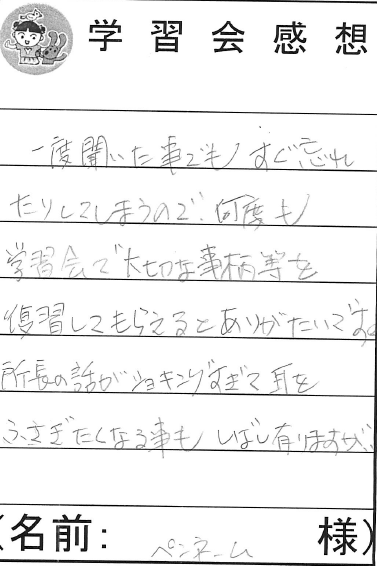 学習会感想
一度聞いた事でも すぐ忘れ
たりしてしまうので、何度も
学習会で大切な事柄等を
復習してもらえるとありがたいです。
所長の話がショキングすぎて耳を
ふさぎたくなる事も しばし有りますが、
(名前: ペンネーム 様)